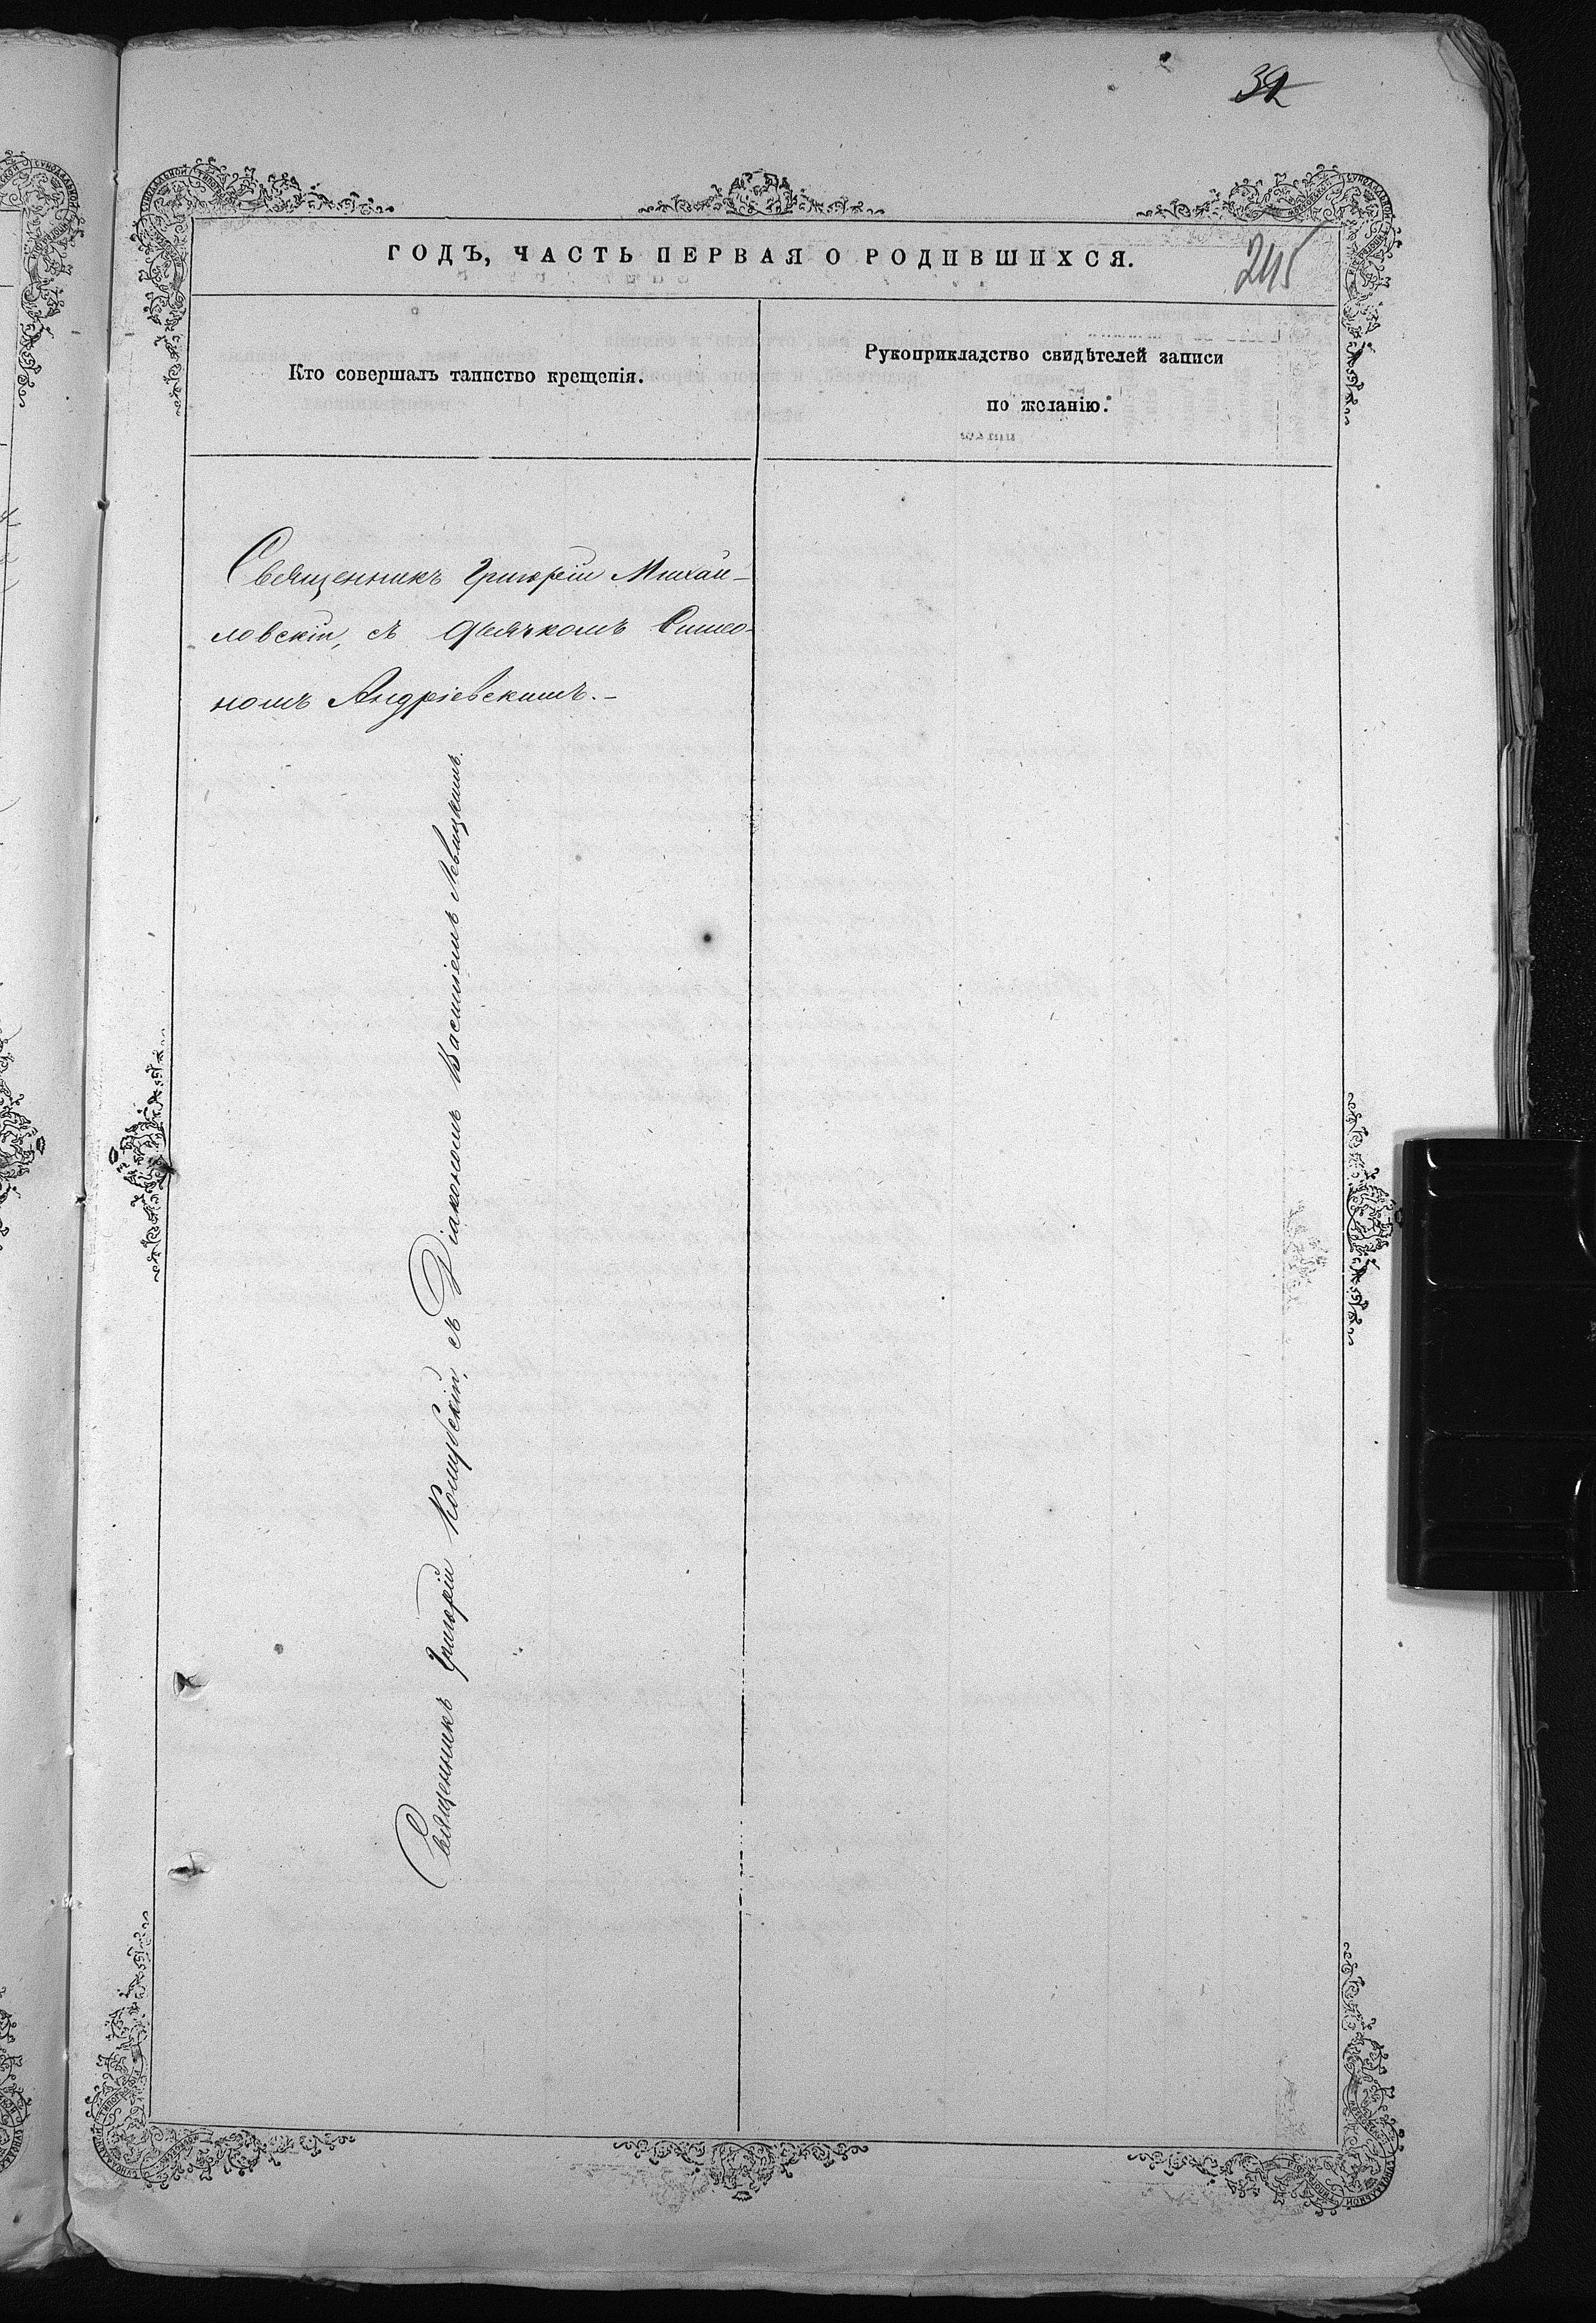 39
ГОДЪ, ЧАСТЬ ПЕРВАЯ О РОДИВШИХСЯ.
245
Кто совершалъ таинство крещенія.
Рукоприкладство свидѣтелей записи
по желанію.
Священникъ Григорій Михай-
ловскій, съ дьячкомъ Симео-
номъ Андріевскимъ.-
Священникъ Григорій Коцюбскій, съ Діакономъ Василіемъ Левицкимъ.